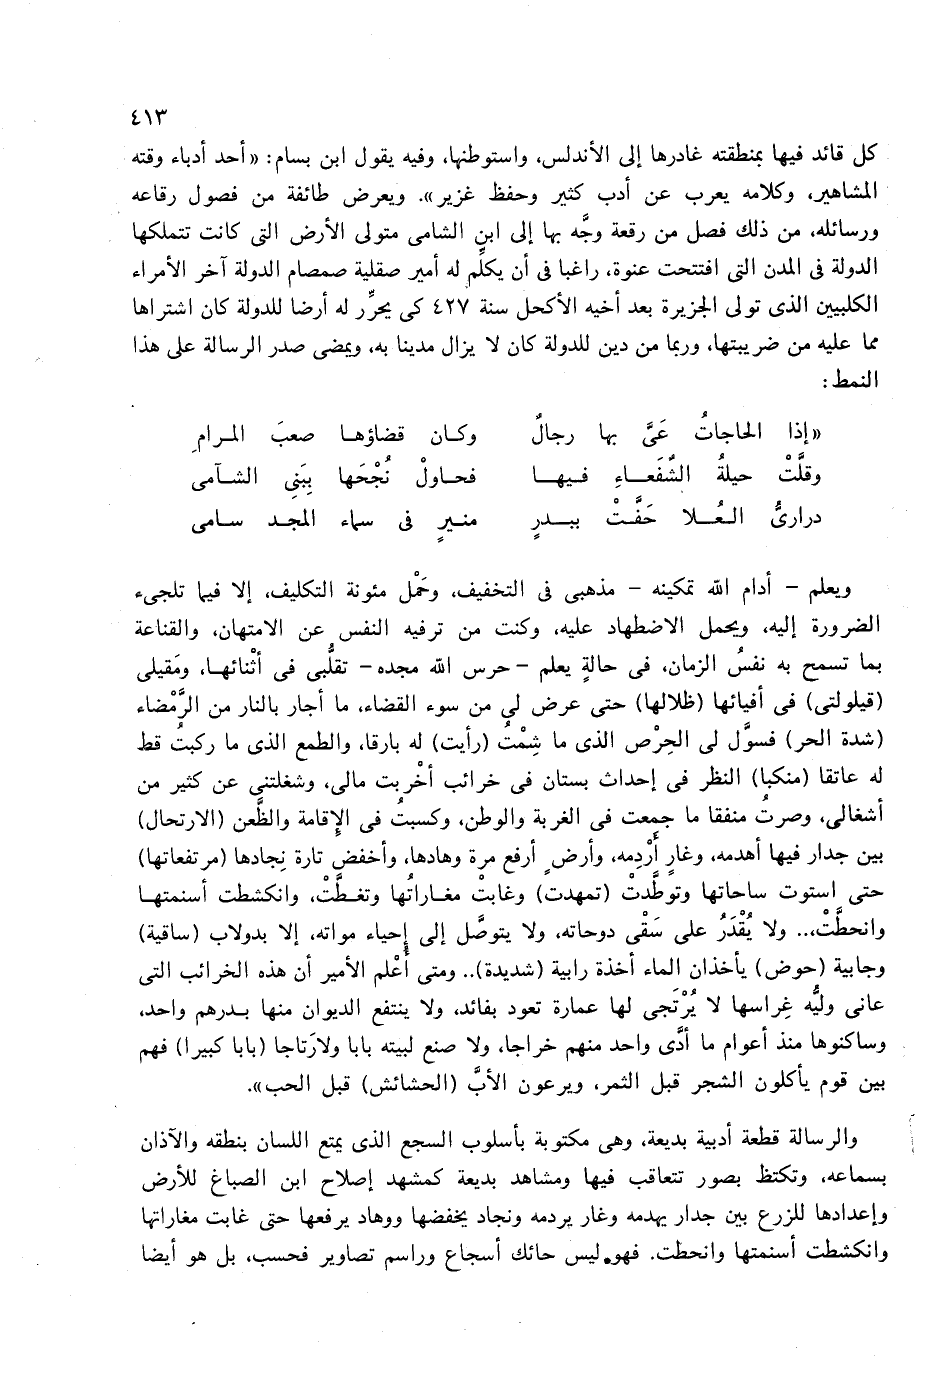 ٤١٣
كل قائد فيها بمنطقته غادرها إلى الأندلس، واستوطنها، وفيه يقول ابن بسام: «أحد أدباء وقته
المشاهير، وكلامه يعرب عن أدب كثير وحفظ غزير». ويعرض طائفة من فصول رقاعه
ورسائله، من ذلك فصل من رقعة وجَّه بها إلى ابن الشامى متولى الأرض التى كانت تتملكها
الدولة فى المدن التى افتتحت عنوة، راغبا فى أن يكلِّم له أمير صقلية صمصام الدولة آخر الأمراء
الكلبيين الذى تولى الجزيرة بعد أخيه الأكحل سنة ٤٢٧ كى يحرِّر له أرضا للدولة كان اشتراها
مما عليه من ضريبتها، وربما من دين للدولة كان لا يزال مدينا به، ويمضى صدر الرسالة على هذا
النمط:
«إذا الحاجاتُ عَىَّ بها رجالٌ وكـان قضاؤهـا صعبَ المـرامِ
وقلَّتْ حيلةُ الشُّفَعـاءِ فـيهـا فحـاولْ نُجْحَها بِبَنِى الشـآمى
درارىُّ العُـلا حَفَّتْ ببـدرٍ منـيرٍ فى سماء المجـد سـامى
ويعلم – أدام الله تمكينه – مذهبى فى التخفيف، وحَمْل مئونة التكليف، إلا فيما تلجىء
الضرورة إليه، ويحمل الاضطهاد عليه، وكنت من ترفيه النفس عن الامتهان، والقناعة
بما تسمح به نفسُ الزمان، فى حالةٍ يعلم – حرس الله مجده – تقلُّبى فى أثْنائهـا، ومَقيلى
(قيلولتى) فى أفيائها (ظلالها) حتى عرض لى من سوء القضاء، ما أجار بالنار من الرَّمْضاء
(شدة الحر) فسوَّل لى الحِرْص الذى ما شِمْتُ (رأيت) له بارقا، والطمع الذى ما ركبتُ قط
له عاتقا (منكبا) النظر فى إحداث بستان فى خرائب أخْربت مالى، وشغلتنى عن كثير من
أشغالى، وصرتُ منفقا ما جمعت فى الغربة والوطن، وكسبتُ فى الإقامة والظَّعن (الارتحال)
بين جدار فيها أهدمه، وغارٍ أَرْدِمه، وأرضٍ أرفع مرة وهادها، وأخفض تارة نِجادها (مرتفعاتها)
حتى استوت ساحاتها وتوطَّدتْ (تمهدت) وغابتْ مغـاراتُها وتغـطَّتْ، وانكشطت أسنمتهـا
وانحطَّتْ... ولا يُقْدَرُ على سَقْى دوحاته، ولا يتوصَّل إلى إحياء مواته، إلا بدولاب (ساقية)
وجابية (حوض) يأخذان الماء أخذة رابية (شديدة).. ومتى أُعْلم الأمير أن هذه الخرائب التى
عانى وليُّه غِراسها لا يُرْتَجى لها عمارة تعود بفائد، ولا ينتفع الديوان منها بـدرهم واحد،
وساكنوها منذ أعوام ما أدَّى واحد منهم خراجا، ولا صنع لبيته بابا ولارَتاجا (بابا كبيرا) فهم
بين قوم يأكلون الشجر قبل الثمر، ويرعون الأبَّ (الحشائش) قبل الحب».
والرسالة قطعة أدبية بديعة، وهى مكتوبة بأسلوب السجع الذى يمتع اللسان بنطقه والآذان
بسماعه، وتكتظ بصور تتعاقب فيها ومشاهد بديعة كمشهد إصلاح ابن الصباغ للأرض
وإعدادها للزرع بين جدار يهدمه وغار يردمه ونجاد يخفضها ووهاد يرفعها حتى غابت مغاراتها
وانكشطت أسنمتها وانحطت. فهو ليس حائك أسجاع وراسم تصاوير فحسب، بل هو أيضا